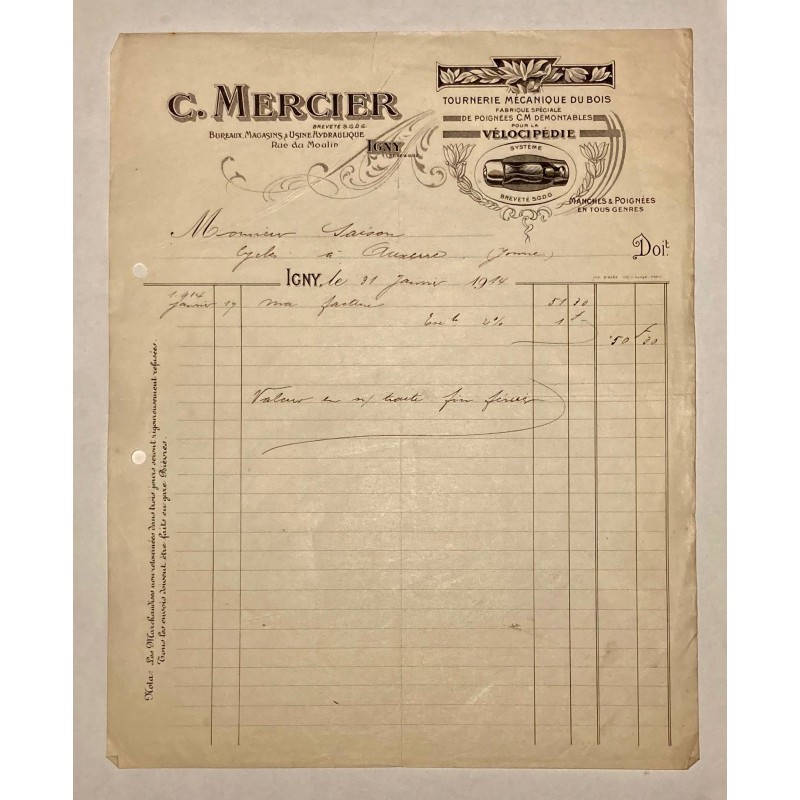 C. MERCIER
BREVETÉ S.G.D.G.
BUREAUX, MAGASINS & USINE HYDRAULIQUE
Rue du Moulin
IGNY
TOURNERIE MÉCANIQUE DU BOIS
FABRIQUE SPÉCIALE
DE POIGNÉES C.M DÉMONTABLES
POUR LA
VÉLOCIPÉDIE
SYSTÈME
BREVETÉ S.G.D.G
MANCHES & POIGNÉES
EN TOUS GENRES
Monsieur Saison
Cycles à Auxerre (Yonne)
Doit
IGNY, le 31 Janvier 1914
1914
Janvier 19 ma facture 51 30
Esc 2% 1
50 30
Valeur en n/ traite fin février
Nota: Les Marchandises non retournées dans trois jours seront rigoureusement refusées.
Tous les envois doivent être faits en gare Bièvres.